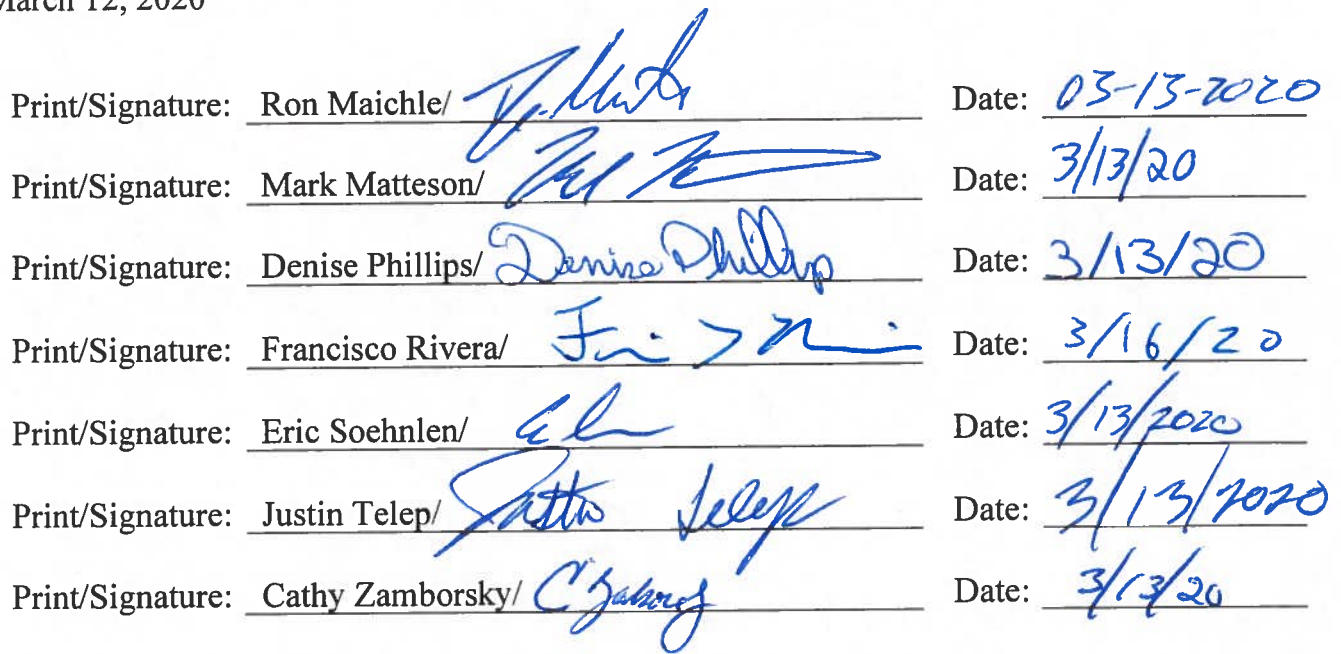 March 12, 2020
Print/Signature: Ron Maichle/ Date: 03-13-2020
Print/Signature: Mark Matteson/ Date: 3/13/20
Print/Signature: Denise Phillips/ Denise Phillips Date: 3/13/20
Print/Signature: Francisco Rivera/ Date: 3/16/20
Print/Signature: Eric Soehnlen/ Date: 3/13/2020
Print/Signature: Justin Telep/ Telep Date: 3/13/2020
Print/Signature: Cathy Zamborsky/ Date: 3/13/20